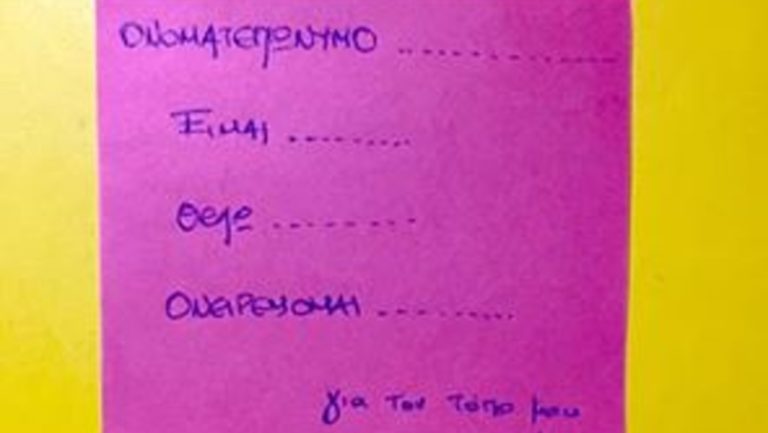 ΟΝΟΜΑΤΕΠΩΝΥΜΟ ..................
ΕΙΜΑΙ ..........
Θέλω ...........
ΟΝΕΙΡΕΥΟΜΑΙ ..........
για τον τόπο μου